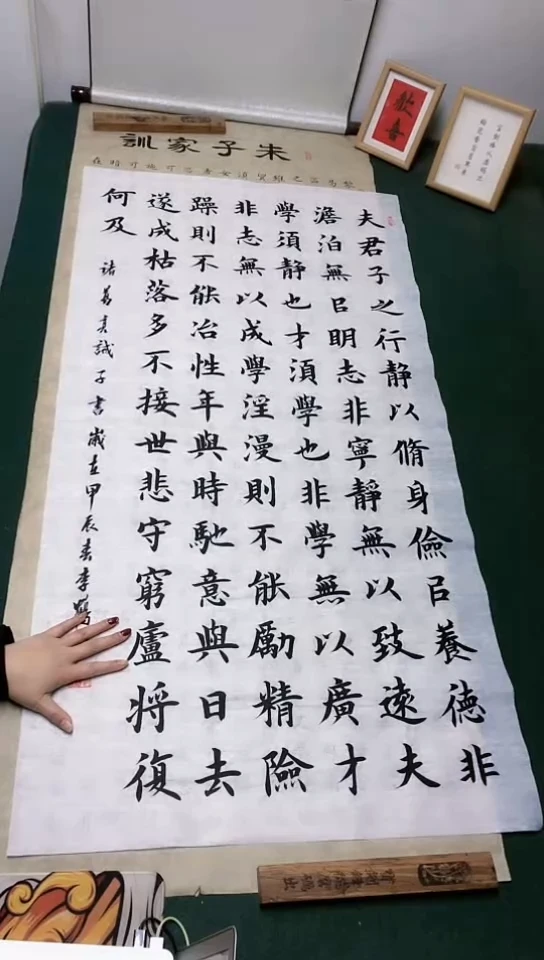 朱子家訓
歡喜
夫君子之行靜以脩身儉㠯養德非
澹泊無㠯明志非寧靜無以致遠夫
學須靜也才須學也非學無以廣才
非志無以成學淫漫則不能勵精險
躁則不能冶性年與時馳意與日去
遂成枯落多不接世悲守窮廬將復
何及
諸葛亮誡子書歲在甲辰春李鶴